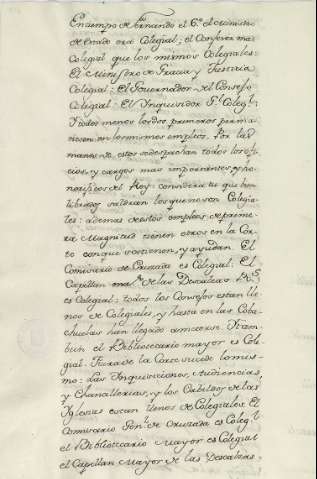 En tiempo de Fernando el 6.º el Ministro
de Estado era Colegial; el Confesor mas
Colegial que los mismos Colegiales:
El Ministro de Gracia y Justicia
Colegial: El Governador del Consejo
Colegial: El Inquisidor G.l Colegl:
Y todos menos los dos primeros perma
necen en los mismos empleos. Por las
manos de estos se despachan todos los ofi
cios, y cargos mas importantes, y ho
norificos del Rey: considera tu que bien
librados saldran los que no son Colegia
les: ademas de estos empleos de prime
ra Magnitud tienen otros en la Cor
te con que sostienen, y ayudan. El
Comisario de Cruzada es Colegial: El
Capellan ma.r de las Descalzas R.s
es Colegial: todos los Consejos estan lle
nos de Colegiales, y hasta en las Coba
chuelas han llegado a meterse. Y tam
bien el Bibliotecario mayor es Cole
gial. Fuera de la Corte sucede lo mis
mo: Las Inquisiciones, Audiencias,
y Chancillerias, y los Cabildos de las
Iglesias estan llenos de Colegiales. El
Comisario Gen.l de Cruzada es Colegl
el Bibliotecario Mayor es Colegial
el Capellan Mayor de las Descalzas